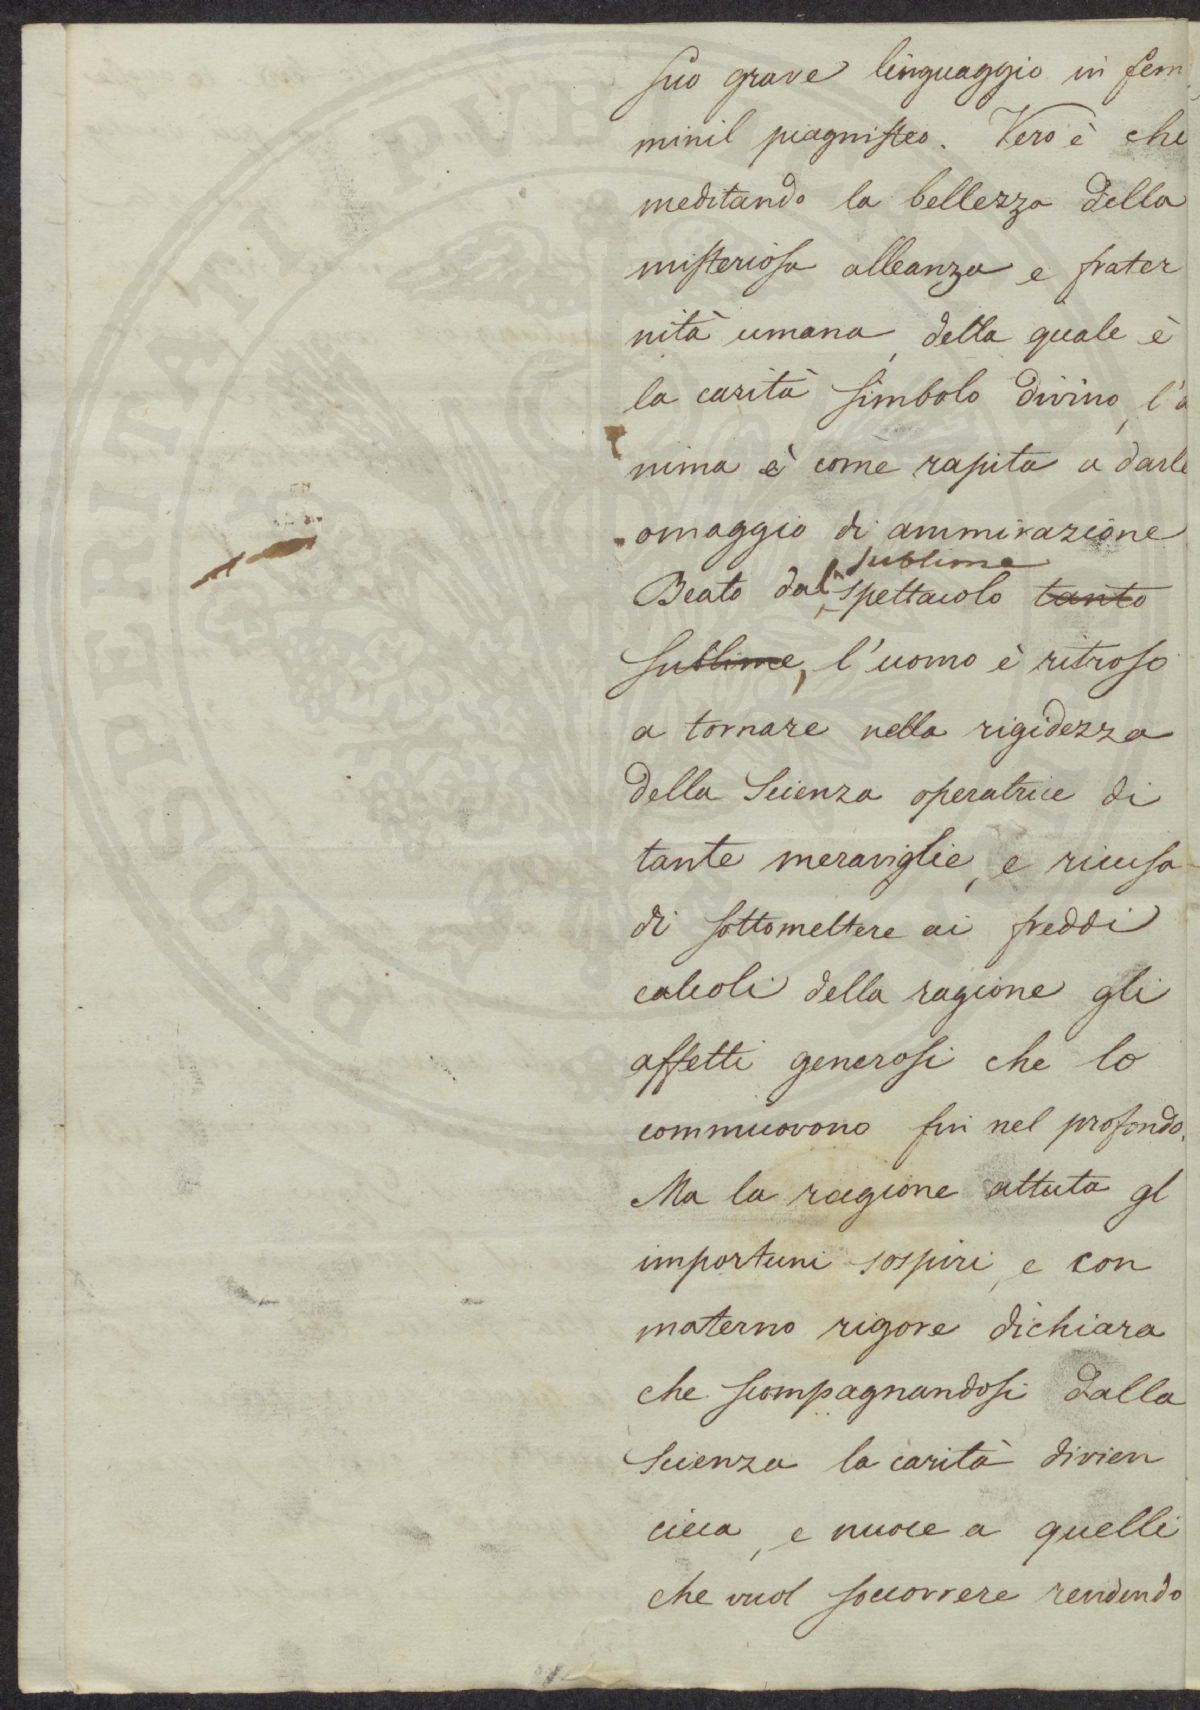 suo grave linguaggio in fem
minil piagnisteo. Vero è che
meditando la bellezza della
misteriosa alleanza e frater
nità umana, della quale è
la carità simbolo divino, l'a
nima è come rapita a darle
omaggio di ammirazione
sublime
Beato dal spettacolo tanto
sublime, l'uomo è ritroso
a tornare nella rigidezza
della Scienza operatrice di
tante meraviglie, e ricusa
di sottomettere ai freddi
calcoli della ragione gli
affetti generosi che lo
commuovono fin nel profondo.
Ma la ragione attuta gl
importuni sospiri, e con
materno rigore dichiara
che scompagnandosi dalla
Scienza la carità divien
cieca, e nuoce a quelli
che vuol soccorrere rendendo